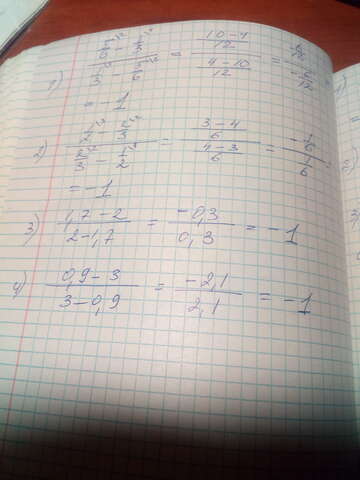 1) (5/6 - 1/3) / (1/3 - 5/6) = ((10-4)/12) / ((4-10)/12) =
= -1
2) (1/2 - 2/3) / (2/3 - 1/2) = ((3-4)/6) / ((4-3)/6) = (-1/6) / (1/6)
= -1
3) (1,7-2) / (2-1,7) = (-0,3) / (0,3) = -1
4) (0,9-3) / (3-0,9) = (-2,1) / (2,1) = -1